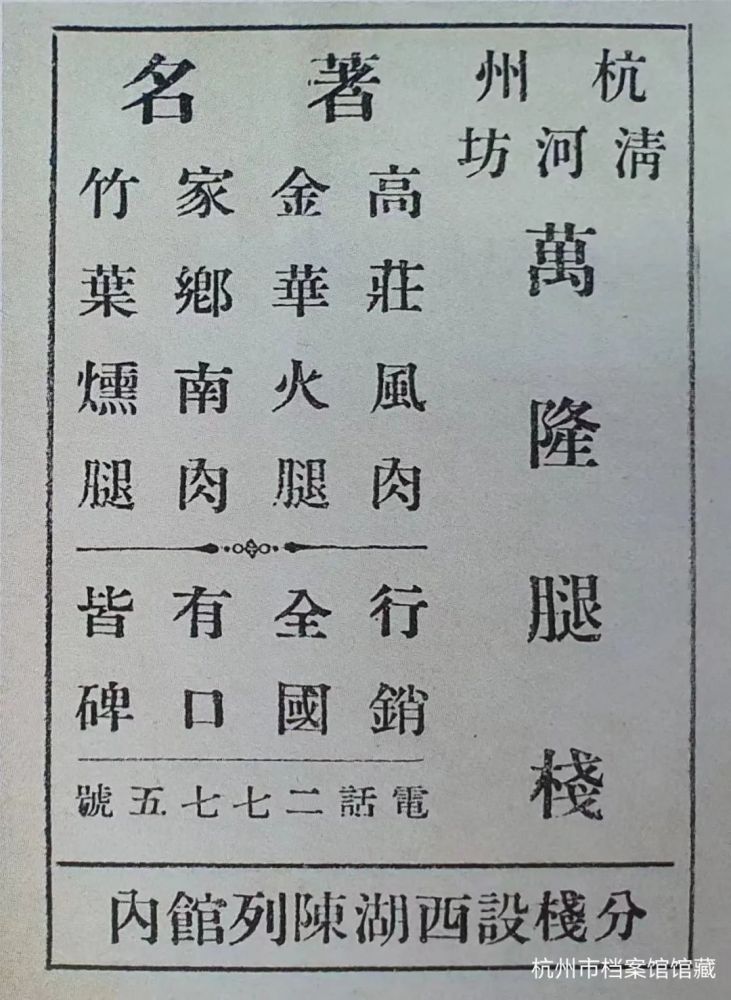 杭州
清河坊
萬隆腿棧
著名
高莊風肉
金華火腿
家鄉南肉
竹葉燻腿
行銷
全國
有口
皆碑
電話二七七五號
分棧設西湖陳列館內
杭州市档案馆馆藏